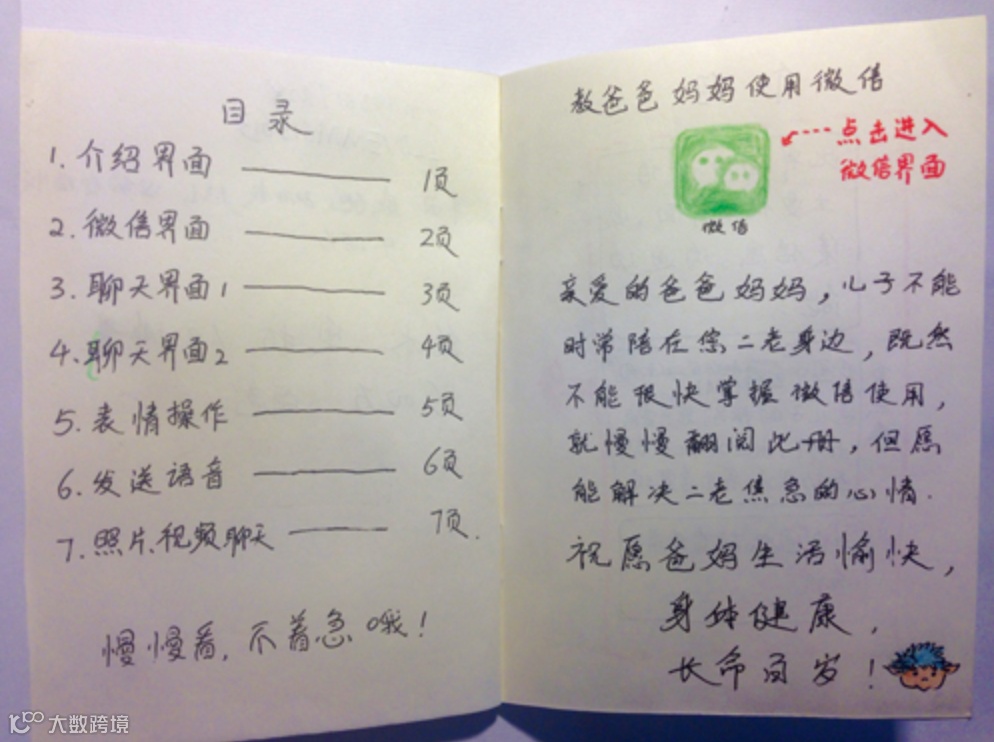 目录
1. 介绍界面 —— 1页
2. 微信界面 —— 2页
3. 聊天界面1 —— 3页
4. 聊天界面2 —— 4页
5. 表情操作 —— 5页
6. 发送语音 —— 6页
7. 照片、视频聊天 —— 7页.
慢慢看，不着急哦！
教爸爸妈妈使用微信
点击进入
微信界面
微信
亲爱的爸爸妈妈，儿子不能
时常陪在您二老身边，既然
不能很快掌握微信使用，
就慢慢翻阅此册，但愿
能解决二老焦急的心情.
祝愿爸妈生活愉快，
身体健康，
长命百岁！
大数跨境